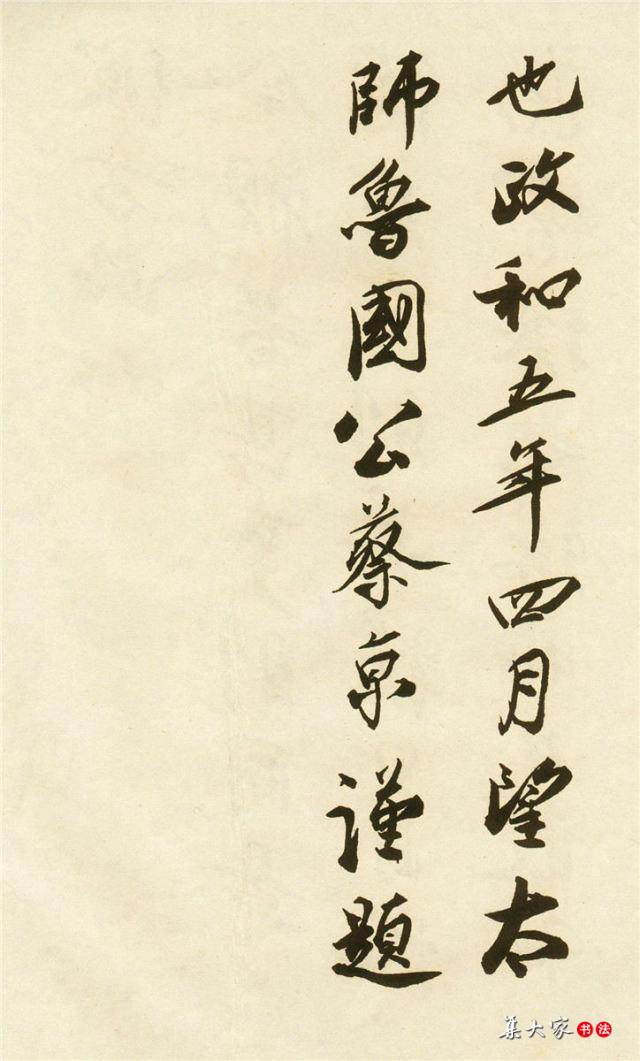 也政和五年四月望太
師魯國公蔡京謹題
集大家书法